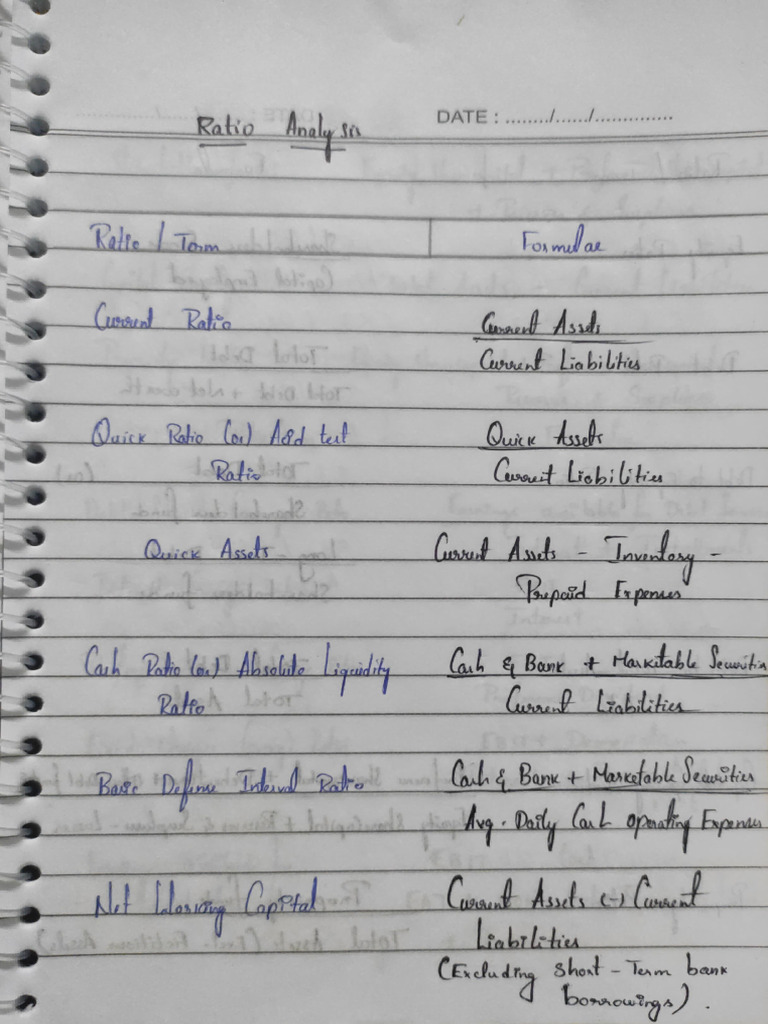 DATE : ......../....../..............
Ratio Analysis
Ratio / Term Formulae
Current Ratio Current Assets
Current Liabilities
Quick Ratio (or) Acid test Quick Assets
Ratio Current Liabilities
Quick Assets Current Assets - Inventory -
Prepaid Expenses
Cash Ratio (or) Absolute Liquidity Cash & Bank + Marketable Securities
Ratio Current Liabilities
Basic Defense Interval Ratio Cash & Bank + Marketable Securities
Avg. Daily Cash Operating Expenses
Net Working Capital Current Assets (-) Current
Liabilities
(Excluding short-Term bank
borrowings).